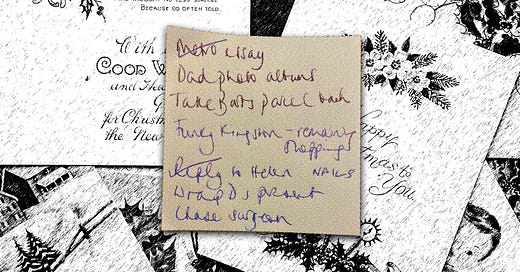 BECAUSE SO OFTEN TOLD.
With
GOOD W
and Hea
for Christm
the New
essay
Dad photo albums
Take Boots parcel back
Kingston - remaining
shopping
Reply to Helen NAILS
Wrap D's present
Chase surgeon
Happy
stmas to
You